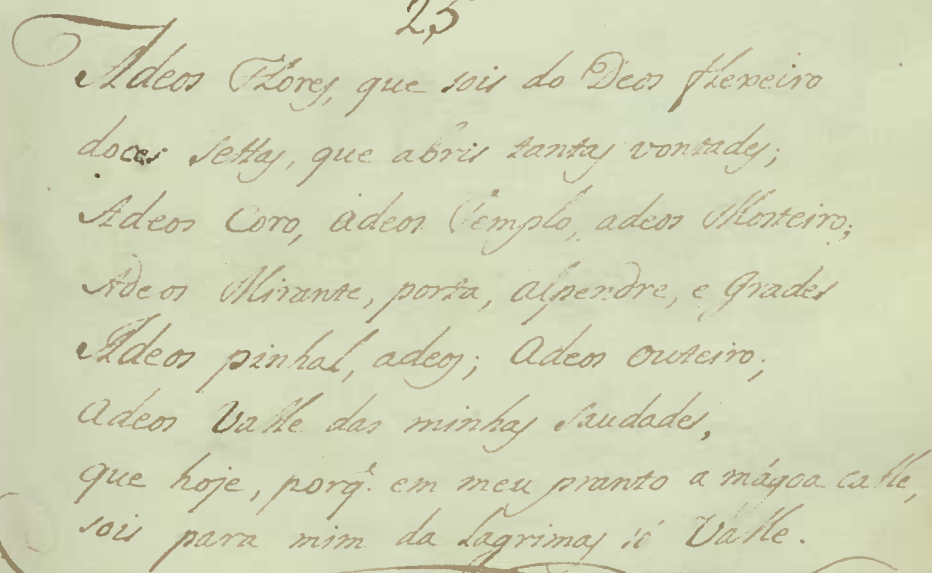 25
Adeos Flores, que sois do Deos frexeiro
doces settas, que abris tantas vontades;
Adeos Coro, adeos Templo, adeos Mosteiro;
Adeos Mirante, porta, alpendre, e Grades
Adeos pinhal, adeos; Adeos outeiro;
Adeos Valle das minhas saudades,
que hoje, porq̃ em meu pranto a mágoa calle,
sois para mim da lagrimas só Valle.